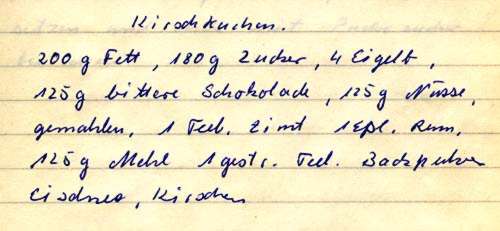 Kirschkuchen.
200 g Fett, 180 g Zucker, 4 Eigelb,
125 g bittere Schokolade, 125 g Nüsse,
gemahlen, 1 Teel. Zimt 1 Eßl. Rum,
125 g Mehl 1 gestr. Teel. Backpulver
Eischnee, Kirschen